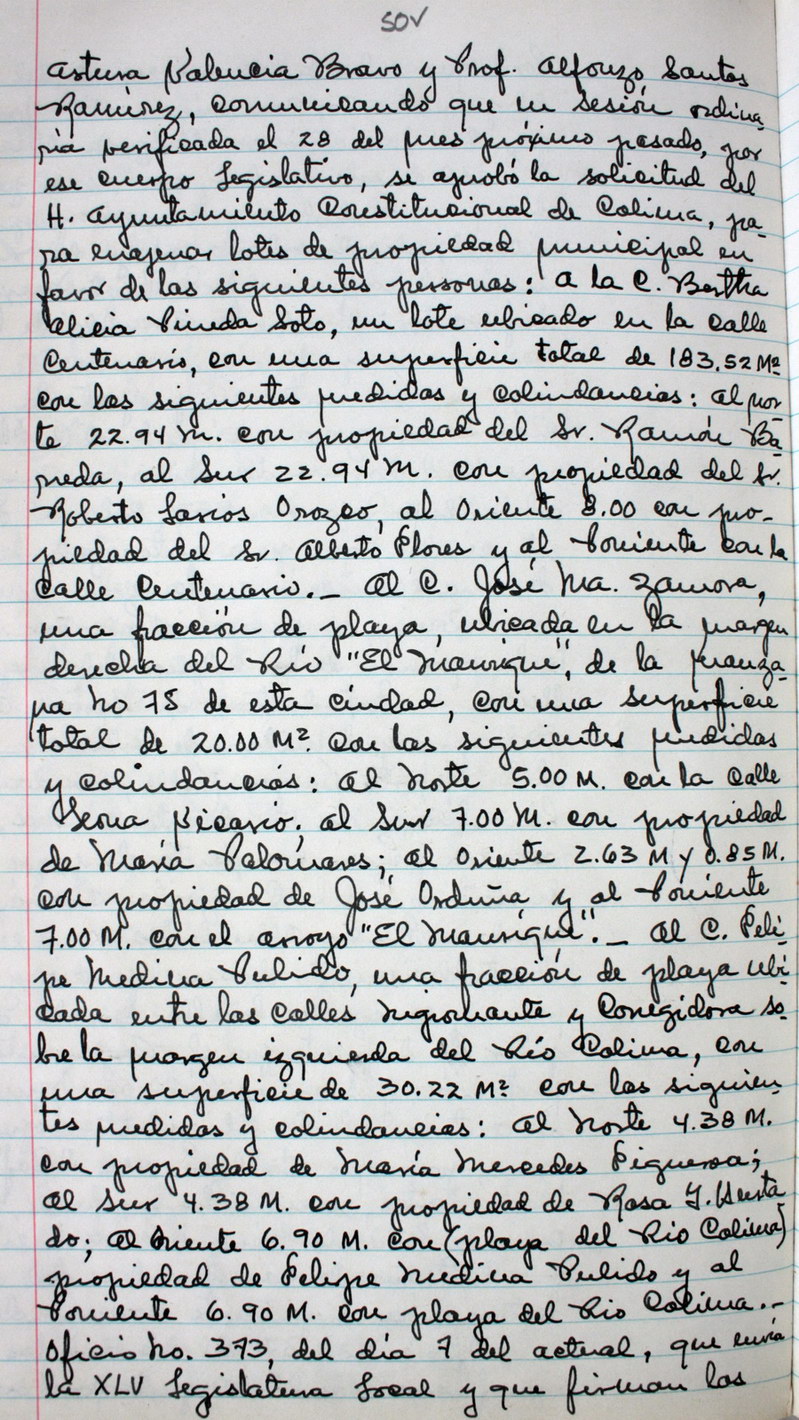 SOV
astura Valencia Bravo y Prof. Alfonzo Santos
Ramírez, comunicando que en sesión ordina_
ria verificada el 28 del mes próximo pasado, por
ese cuerpo Legislativo, se aprobó la solicitud del
H. Ayuntamiento Constitucional de Colima, pa_
ra enajenar lotes de propiedad municipal en
favor de las siguientes personas: a la C. Bertha
Alicia Pineda Soto, un lote ubicado en la calle
Centenario, con una superficie total de 183.52 M²
con las siguientes medidas y colindancias: al nor_
te 22.94 M. con propiedad del Sr. Ramón Ba_
rreda, al Sur 22.94 M. con propiedad del Sr.
Roberto Larios Orozco, al Oriente 8.00 con pro_
piedad del Sr. Alberto Flores y al Poniente con la
calle Centenario._ Al C. José Ma. Zamora,
una fracción de playa, ubicada en la margen
derecha del Río "El Manrique", de la manza_
na No 75 de esta ciudad, con una superficie
total de 20.00 M² con las siguientes medidas
y colindancias: al Norte 5.00 M. con la calle
Leona Vicario; al Sur 7.00 M. con propiedad
de María Palomares; al Oriente 2.63 M y 0.85 M.
con propiedad de José Orduña y al Poniente
7.00 M. con el arroyo "El Manrique"._ Al C. Feli_
pe Medina Pulido, una fracción de playa ubi_
cada entre las calles Nigromante y Corregidora so_
bre la margen izquierda del Río Colima, con
una superficie de 30.22 M² con las siguien_
tes medidas y colindancias: al Norte 4.38 M.
con propiedad de María Mercedes Figueroa;
al Sur 4.38 M. con propiedad de Rosa J. Hurta
do; al Oriente 6.90 M. con (playa del Río Colima)
propiedad de Felipe Medina Pulido y al
Poniente 6.90 M. con playa del Río Colima._
Oficio No. 373, del día 7 del actual, que envía
la XLV Legislatura Local y que firman los